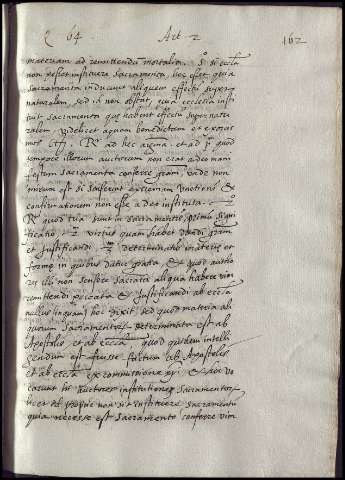 q 64. Art. 2 162
materiam ad remittendum mortalia. si eccl̄a
non posset instituere Sacramenta, hoc esset, quia
Sacramenta inducunt aliquem effectū super
naturalem, sed id non obstat, quia ecclesia insti
tuit Sacramenta que habent effectū supernatu
ralem, videlicet aquam benedictam et
R. ad hec et ad quod
tempore illorum auctorum non erat adeo mani
festum Sacramenta conferre grām, unde non
mirum est si
confirmationem non esse a deo instituta.
R. quod tria sunt in sacramentis, primū signi
ficatio, virtus quam habet dandi grām
et Justificandi. determinatio materie et
forme in quibus datur gratia, & quod aucto
res illi non Sacrā aliqua habere vim
remittendi peccata & Justificandi ab eccl̄a
nullus unquam hec dixit, sed quod materia ali
quorum Sacramentorū determinata est ab
Apostolis et ab eccl̄a quod quidem intelli
gendum est fuisse factum ab Apostolis
et ab eccl̄a ex commissione & sic vo
carunt hi auctores institutionem Sacramentorū
licet proprie non sit instituere Sacramentū
quia necesse est Sacramento conferre vim